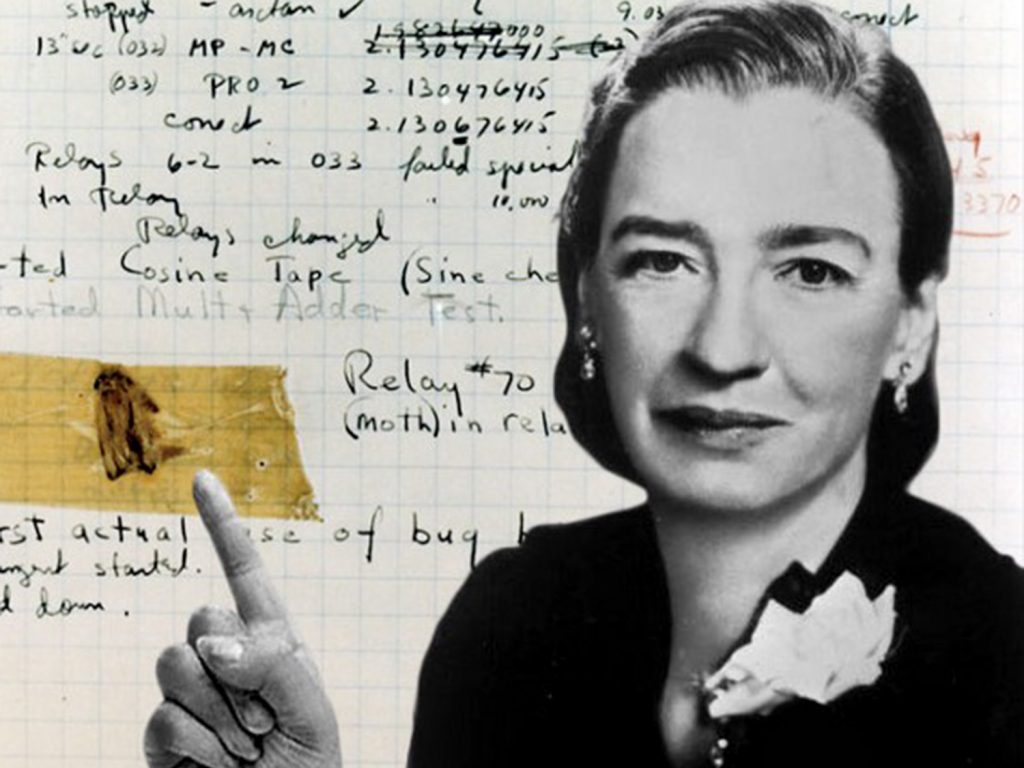 stopped - arctan ✓
13" uc (032) MP - MC 1.982647000
2.130476415 (23)
(033) PRO 2 2.130476415
conect 2.130676415
Relays 6-2 in 033 failed special
In Relay 10,000
Relays changed
ted Cosine Tape (Sine che
orted Mult + Adder Test.
Relay #70
(moth) in rela
rst actual se of bug b
started.
d down.
9.03
conect
3370